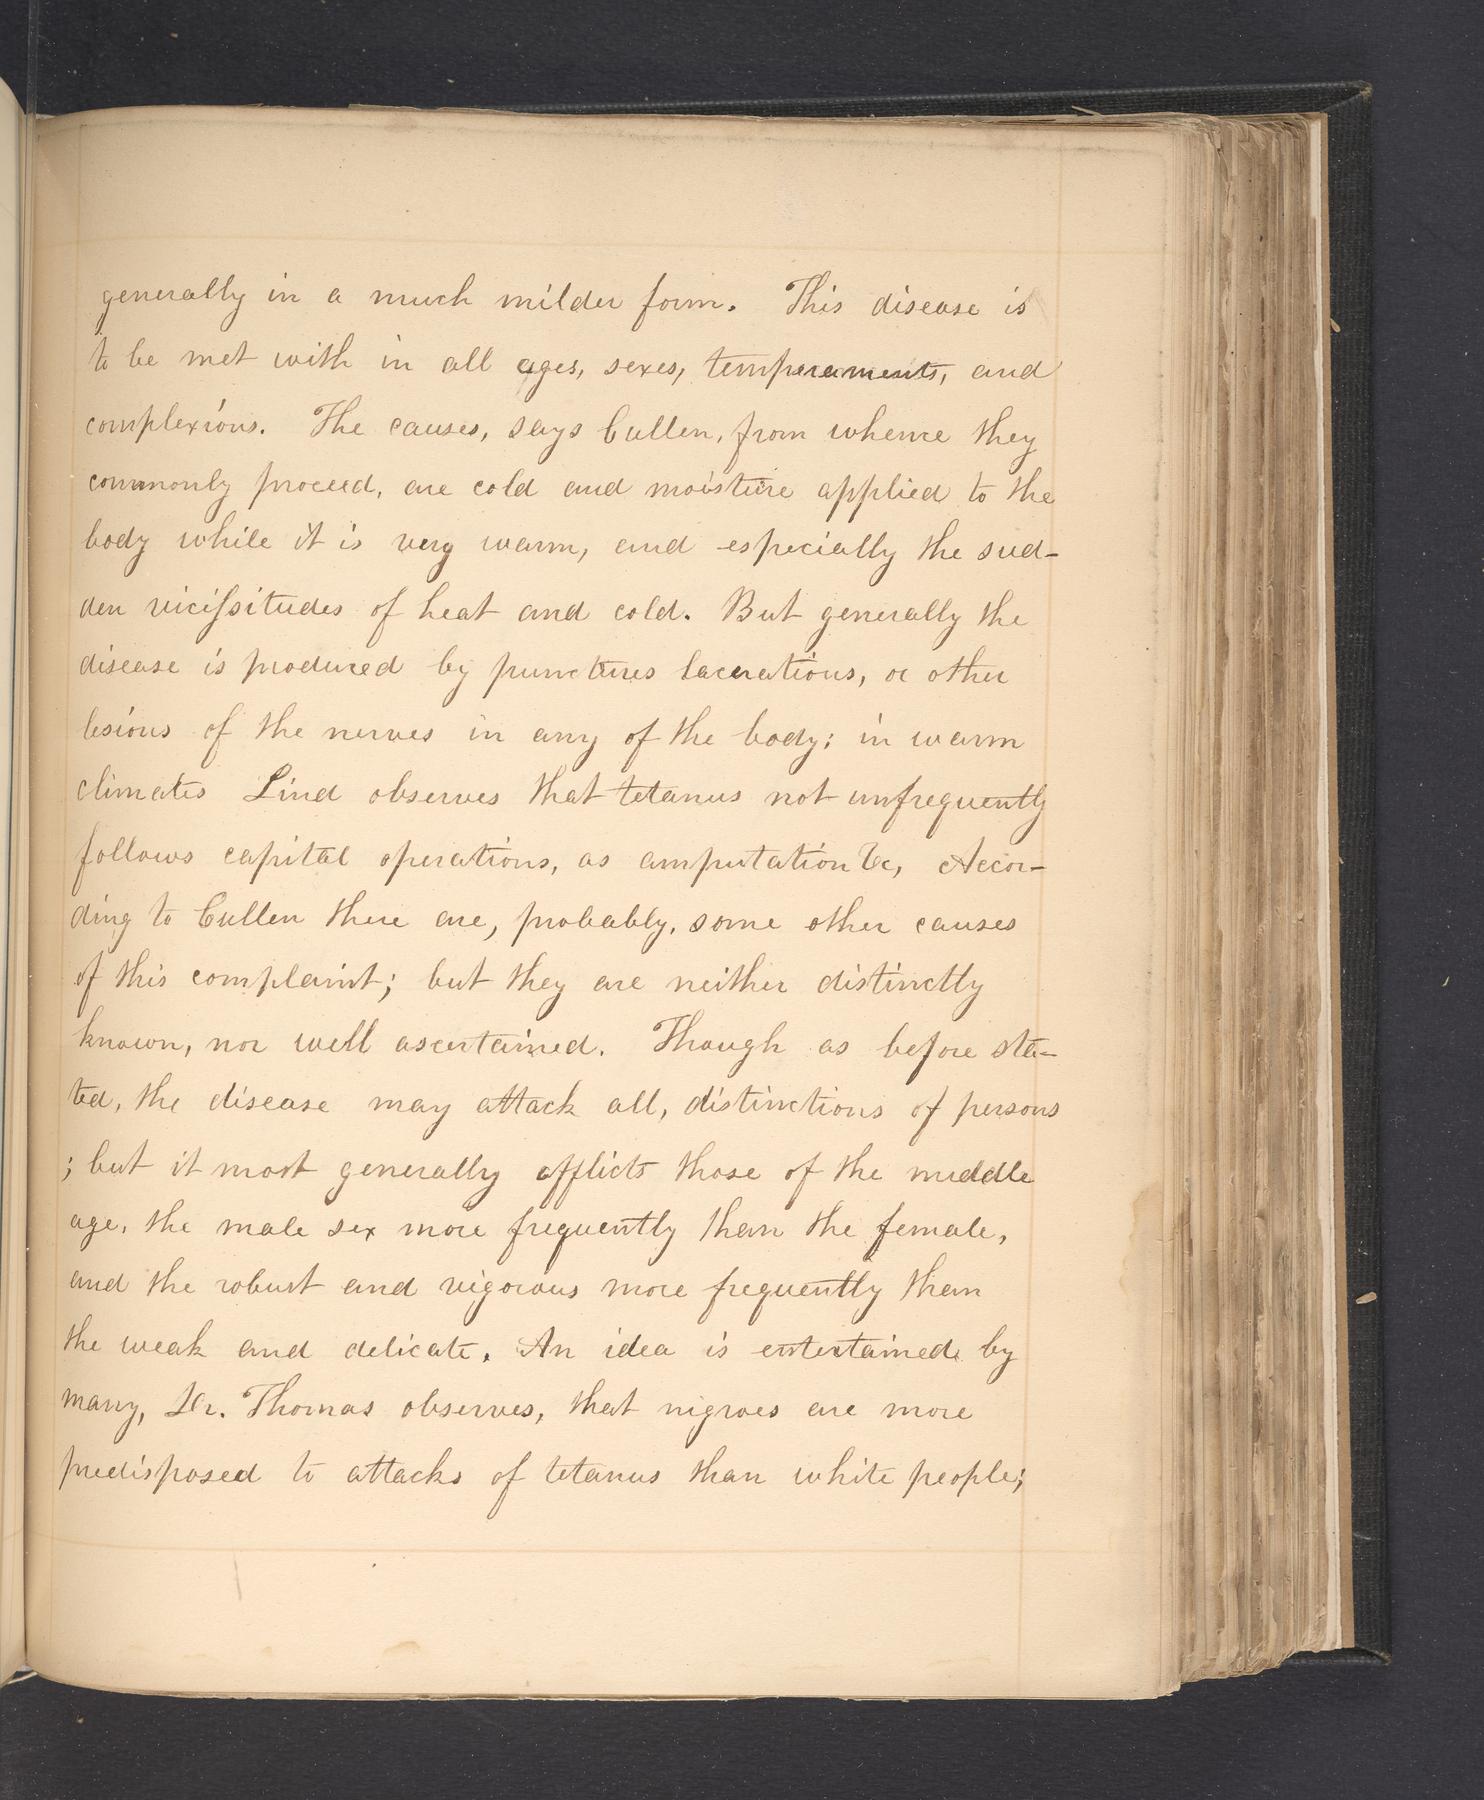 generally in a much milder form. This disease is
to be met with in all ages, sexes, temperaments, and
complexions. The causes, says Cullen, from whence they
commonly proceed, are cold and moisture applied to the
body while it is very warm, and especially the sud-
den viciſsitudes of heat and cold. But generally the
disease is produced by punctures lacerations, or other
lesions of the nerves in any of the body; in warm
climates Lind observes that tetanus not unfrequently
follows capital operations, as amputation &c, Accor-
ding to Cullen there are, probably, some other causes
of this complaint; but they are neither distinctly
known, nor well ascertained. Though as before sta-
ted, the disease may attack all, distinctions of persons
; but it most generally afflicts those of the middle
age, the male sex more frequently than the female,
and the robust and vigorous more frequently than
the weak and delicate. An idea is entertained by
many, Dr. Thomas observes, that nigroes are more
predisposed to attacks of tetanus than white people;